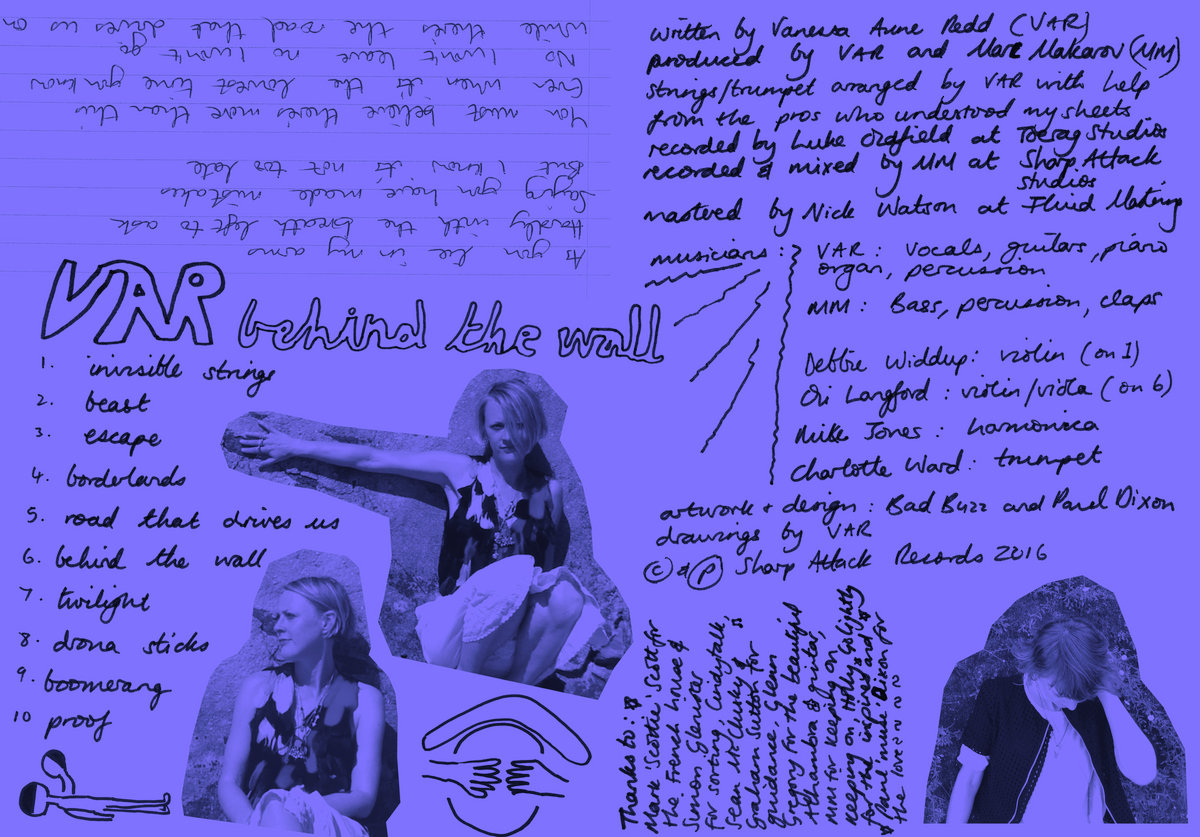 As you lie in my arms
Hardly with the breath left to ask
Saying you have made mistakes
But I know its not too late
You must believe theres more than this
Even when its the lowest time you know
No I won't leave no I won't go
While theres the road that drives us on
VAR behind the wall
1. invisible strings
2. beast
3. escape
4. borderlands
5. road that drives us
6. behind the wall
7. twilight
8. drona sticks
9. boomerang
10 proof
written by Vanessa Anne Redd (VAR)
produced by VAR and Marc Makarov (MM)
strings/trumpet arranged by VAR with help
from the pros who understood my sheets
recorded by Luke Oldfield at Toerag Studios
recorded & mixed by MM at Sharp Attack
Studios
mastered by Nick Watson at Fluid Mastering
musicians:
VAR: vocals, guitars, piano
organ, percussion
MM: Bass, percussion, claps
Debbie Widdup: violin (on 1)
Oli Langford: violin/viola (on 6)
Mike Jones: harmonica
Charlotte Ward: trumpet
artwork + design: Bad Buzz and Paul Dixon
drawings by VAR
© & ℗ Sharp Attack Records 2016
Thanks to:
Mark 'Scottie' Scott for
the French house &
Simon Glenister
for sorting, Cindytalk,
Sean McClusky &
Graham Sutton for
guidance, Glenn
Gregory for the beautiful
Alhambra guitar,
MM for keeping on
keeping on, Holly Golightly
for the inspires and
Paul 'muii' Dixon for
the love